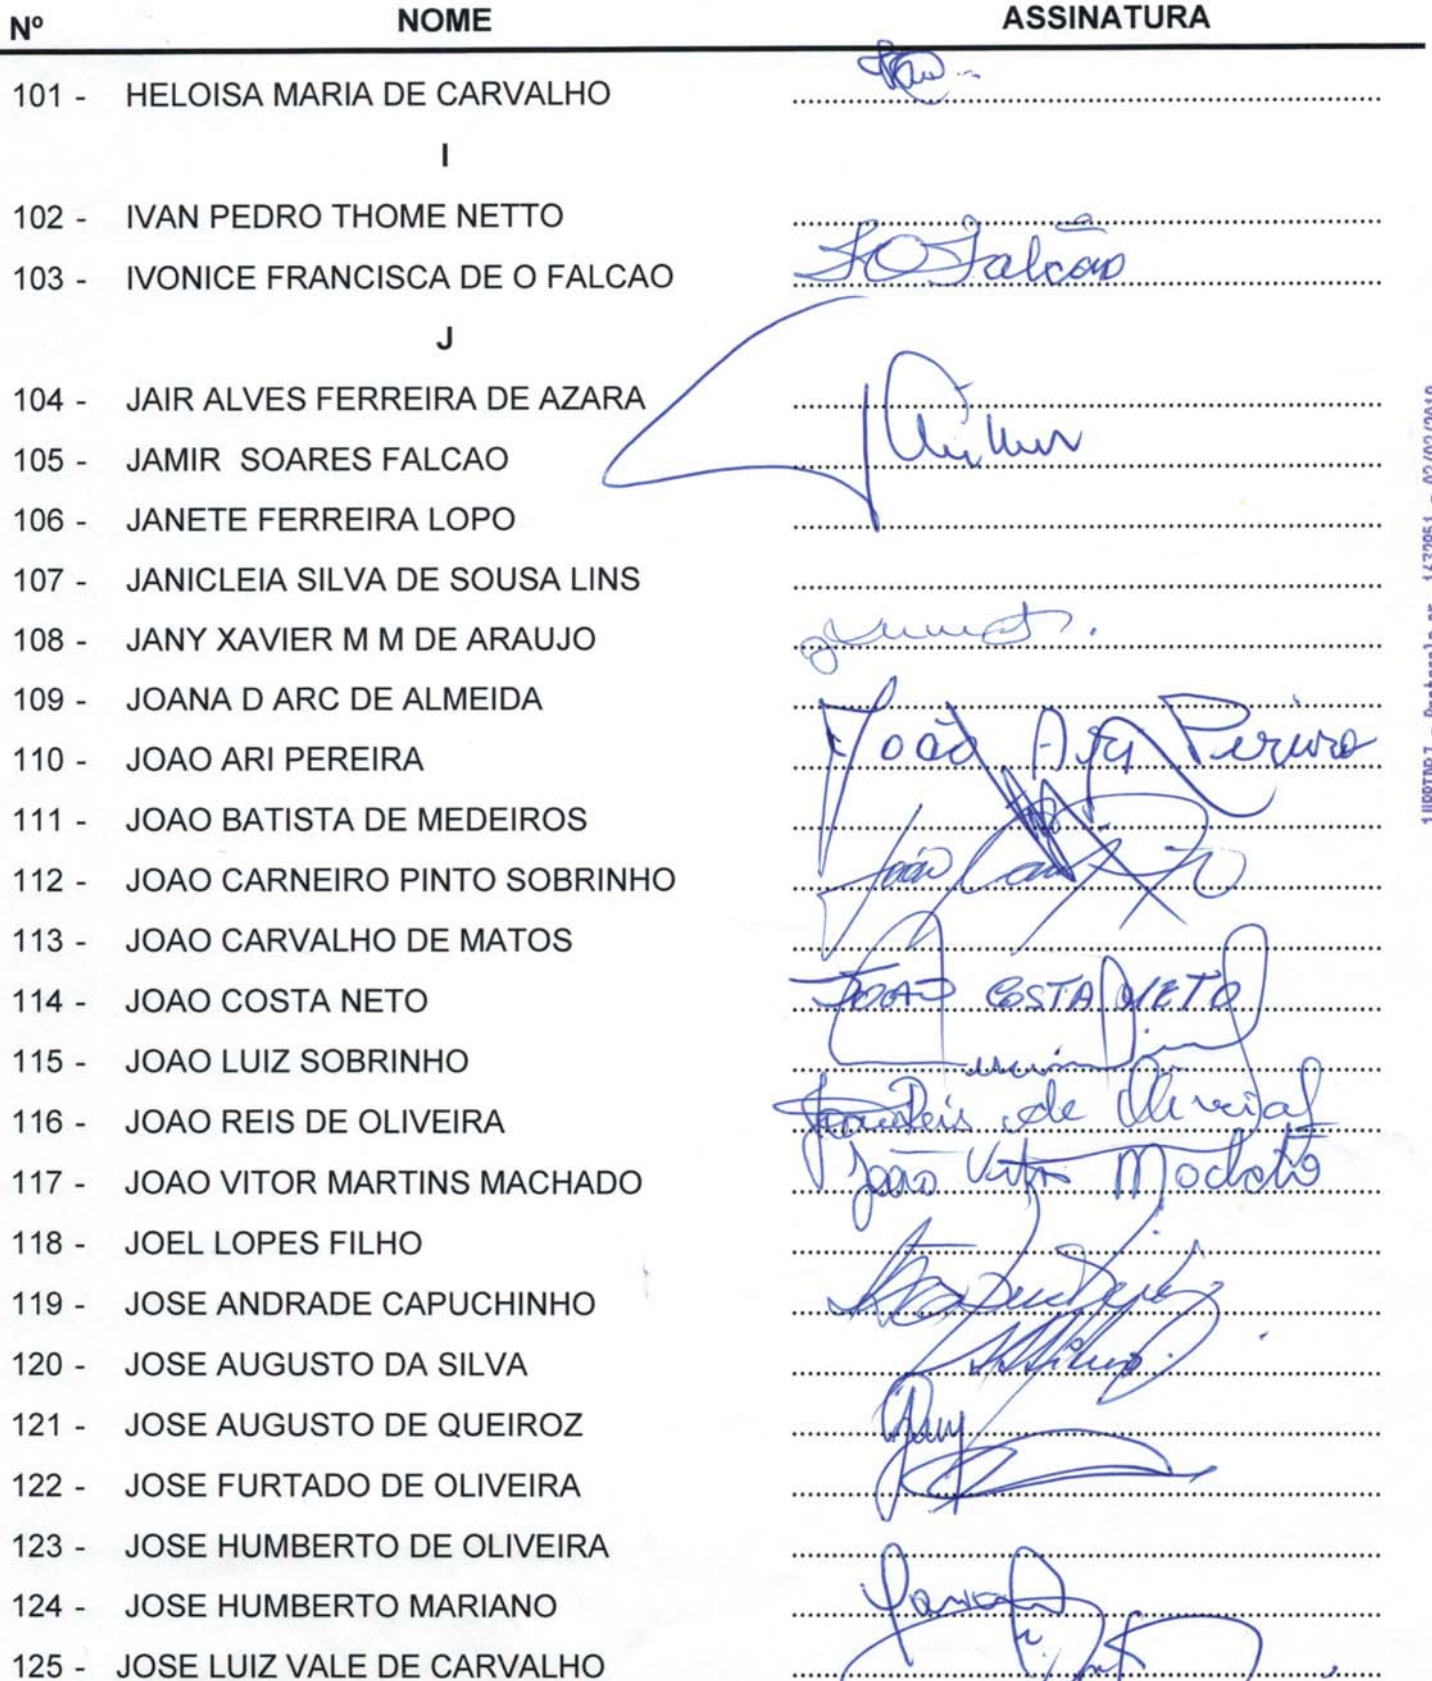 Nº NOME ASSINATURA
101 - HELOISA MARIA DE CARVALHO
I
102 - IVAN PEDRO THOME NETTO
103 - IVONICE FRANCISCA DE O FALCAO IO Falcão
J
104 - JAIR ALVES FERREIRA DE AZARA
105 - JAMIR SOARES FALCAO
106 - JANETE FERREIRA LOPO
107 - JANICLEIA SILVA DE SOUSA LINS
108 - JANY XAVIER M M DE ARAUJO
109 - JOANA D ARC DE ALMEIDA
110 - JOAO ARI PEREIRA João Ari Pereira
111 - JOAO BATISTA DE MEDEIROS
112 - JOAO CARNEIRO PINTO SOBRINHO João
113 - JOAO CARVALHO DE MATOS
114 - JOAO COSTA NETO JOAO COSTA NETO
115 - JOAO LUIZ SOBRINHO
116 - JOAO REIS DE OLIVEIRA Reis de
117 - JOAO VITOR MARTINS MACHADO João Vitor
118 - JOEL LOPES FILHO
119 - JOSE ANDRADE CAPUCHINHO
120 - JOSE AUGUSTO DA SILVA
121 - JOSE AUGUSTO DE QUEIROZ
122 - JOSE FURTADO DE OLIVEIRA
123 - JOSE HUMBERTO DE OLIVEIRA
124 - JOSE HUMBERTO MARIANO
125 - JOSE LUIZ VALE DE CARVALHO